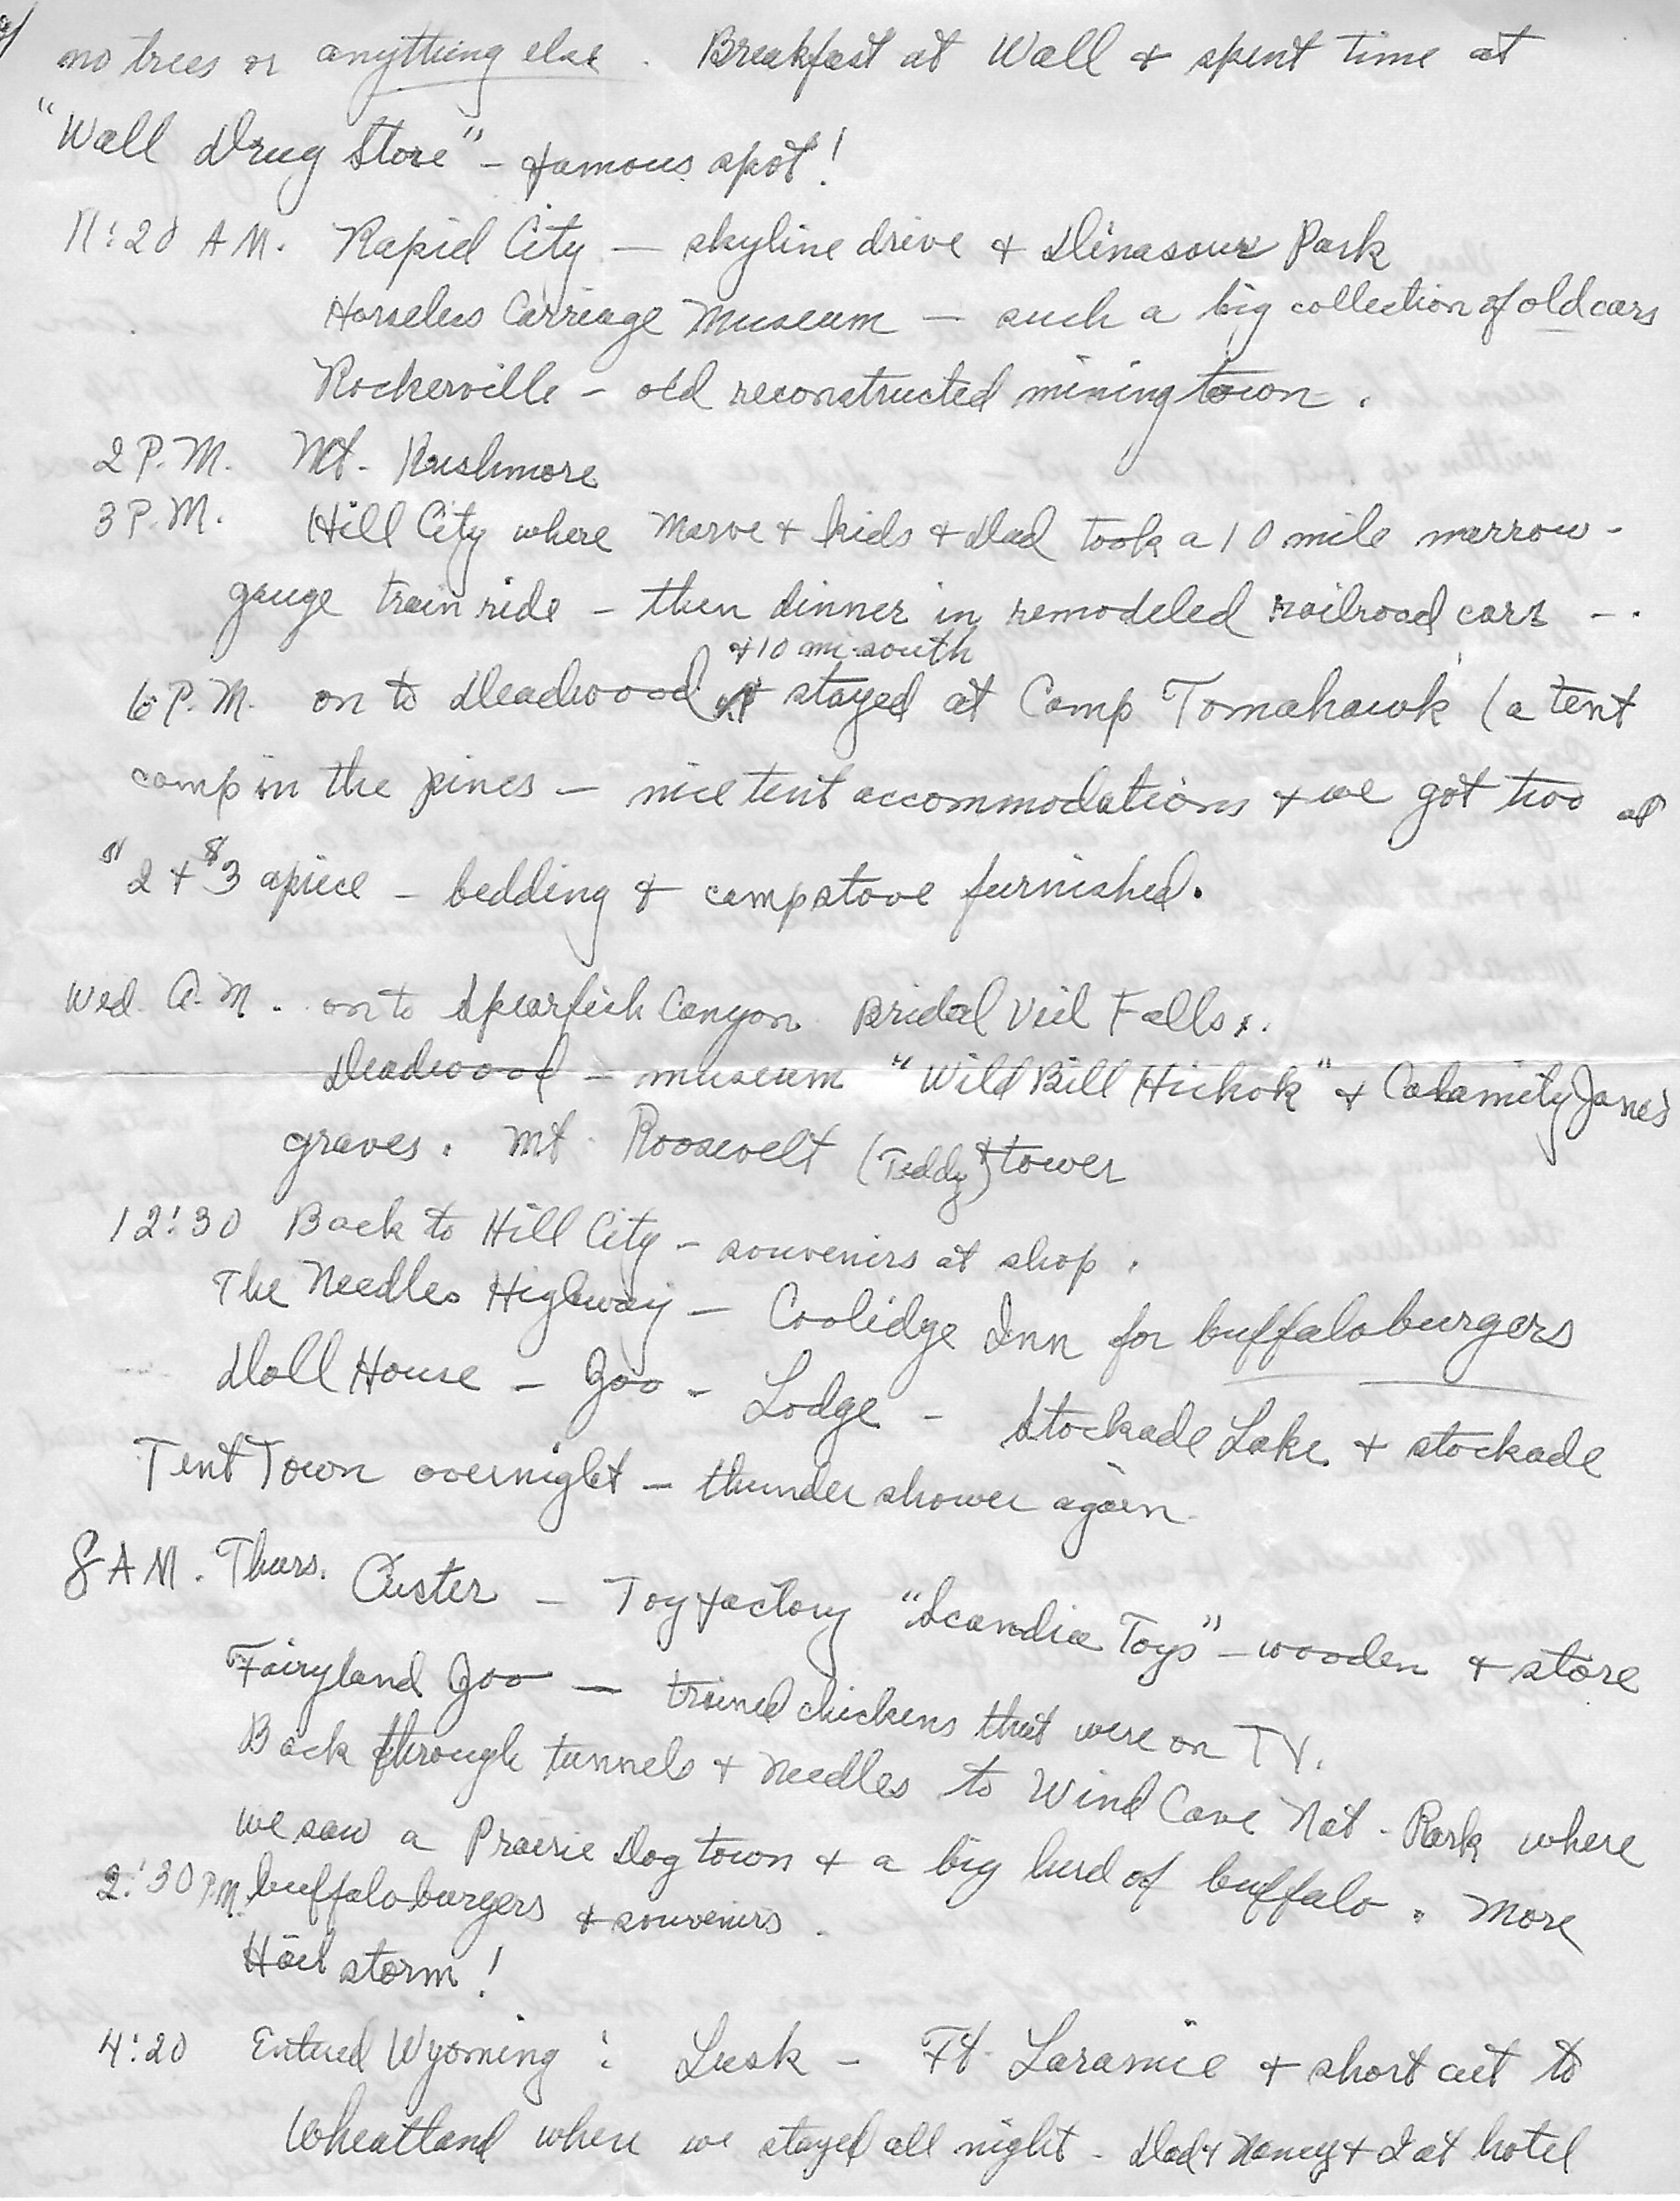 no trees or anything else. Breakfast at Wall & spent time at
"Wall Drug Store" - famous spot!
11:20 A.M. Rapid City — skyline drive & Dinasour Park
Horseless Carriage Museum — such a big collection of old cars
Rockerville - old reconstructed mining town.
2 P.M. Mt. Rushmore
3 P.M. Hill City where Marve & kids & Dad took a 10 mile narrow-
gauge train ride - then dinner in remodeled railroad cars -.
& 10 mi south
6 P.M. on to Deadwood stayed at Camp Tomahawk (a tent
camp in the pines — nice tent accommodations & we got two at
$2 & $3 apiece - bedding & campstove furnished.
Wed. A.M. on to Spearfish Canyon Bridal Veil Falls.
Deadwood - museum "Wild Bill Hickok" & Calamity Jane's
graves. Mt Roosevelt (Teddy) & tower
12:30 Back to Hill City - souvenirs at shop.
The Needles Highway - Coolidge Inn for buffaloburgers
Doll House - Zoo - Lodge - Stockade Lake & stockade
Tent Town overnight - thunder shower again
8 A.M. Thurs. Custer - Toy factory "Scandia Toys" - wooden & store
Fairyland Zoo — trained chickens that were on TV.
Back through tunnels & Needles to Wind Cave Nat. Park where
we saw a Prairie Dog town & a big herd of buffalo. More
2:30 P.M. buffaloburgers & souvenirs.
Hail storm!
4:20 Entered Wyoming : Lusk - Ft. Laramie & short cut to
Wheatland where we stayed all night - Dad & Nancy & I at hotel